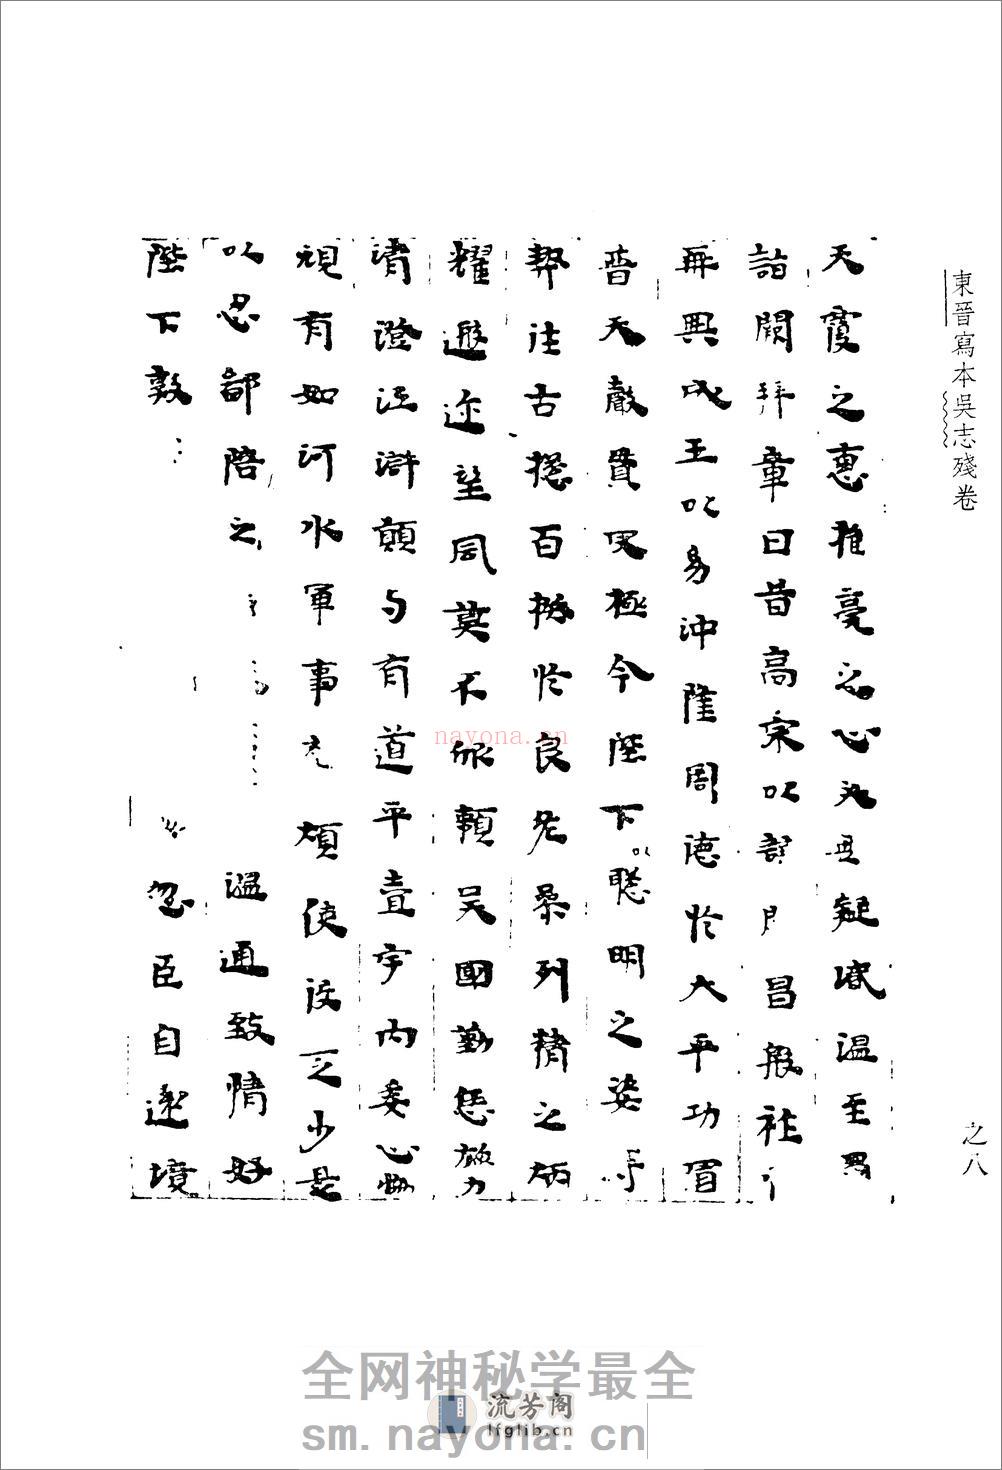 東晉寫本吳志殘卷
之八
天覆之惠推亮之心必無疑貳溫至蜀
詣闕拜章曰昔高宗以諒昌殷祚
再興成王以易沖隆周德於大平功冒
普天聲貫罔極今陛下以聰明之姿等
契往古揔百揆於良佐參列精之炳
耀遐迩望風莫不欣賴吳國勤恁旅力
清澄江滸願与有道平壹宇内委心協
規有如河水軍事充煩使役乏少是
以忍鄙陪之 溫通致情好
陛下敦 忽臣自遠境
nayona.cn
全网神秘学最全
流芳阁
lfglib.cn
sm.nayona.cn